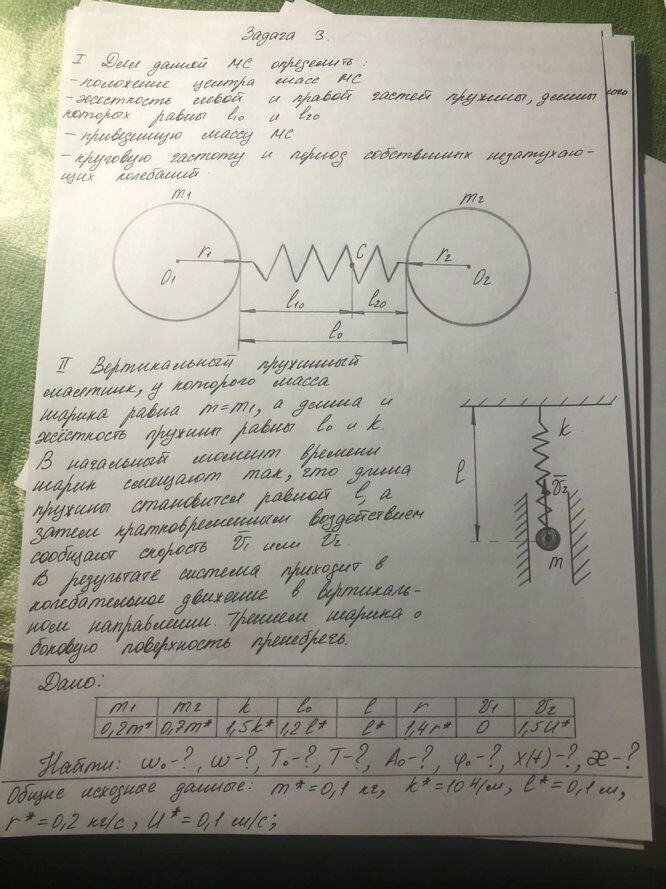 Задача 3.
I Для данной МС определить:
- положение центра масс МС
- жесткость левой и правой частей пружины, длины кото
которых равны l10 и l20
- приведенную массу МС
- круговую частоту и период собственных незатухаю-
щих колебаний
m1
m2
r1
C
r2
O1
O2
l10
l20
l0
II Вертикальный пружинный
маятник, у которого масса
шарика равна m=m1, а длина и
жёсткость пружины равны l0 и k.
В начальный момент времени
шарик смещают так, что длина
пружины становится равной l, а
затем кратковременным воздействием
сообщают скорость v̄1 или v̄2.
В результате система приходит в
колебательное движение в вертикаль-
ном направлении. Трением шарика о
боковую поверхность пренебречь.
k
l
v̄2
m
Дано:
m1 m2 k l0 l r v1 v2
0,2m* 0,7m* 1,5k* 1,2l* l* 1,4r* 0 1,5U*
Найти: ω0-?, ω-?, T0-?, T-?, A0-?, φ0-?, x(t)-?, æ-?
Общие исходные данные: m*=0,1 кг, k*=10 Н/м, l*=0,1 м,
r*=0,2 кг/с, U*=0,1 м/с;